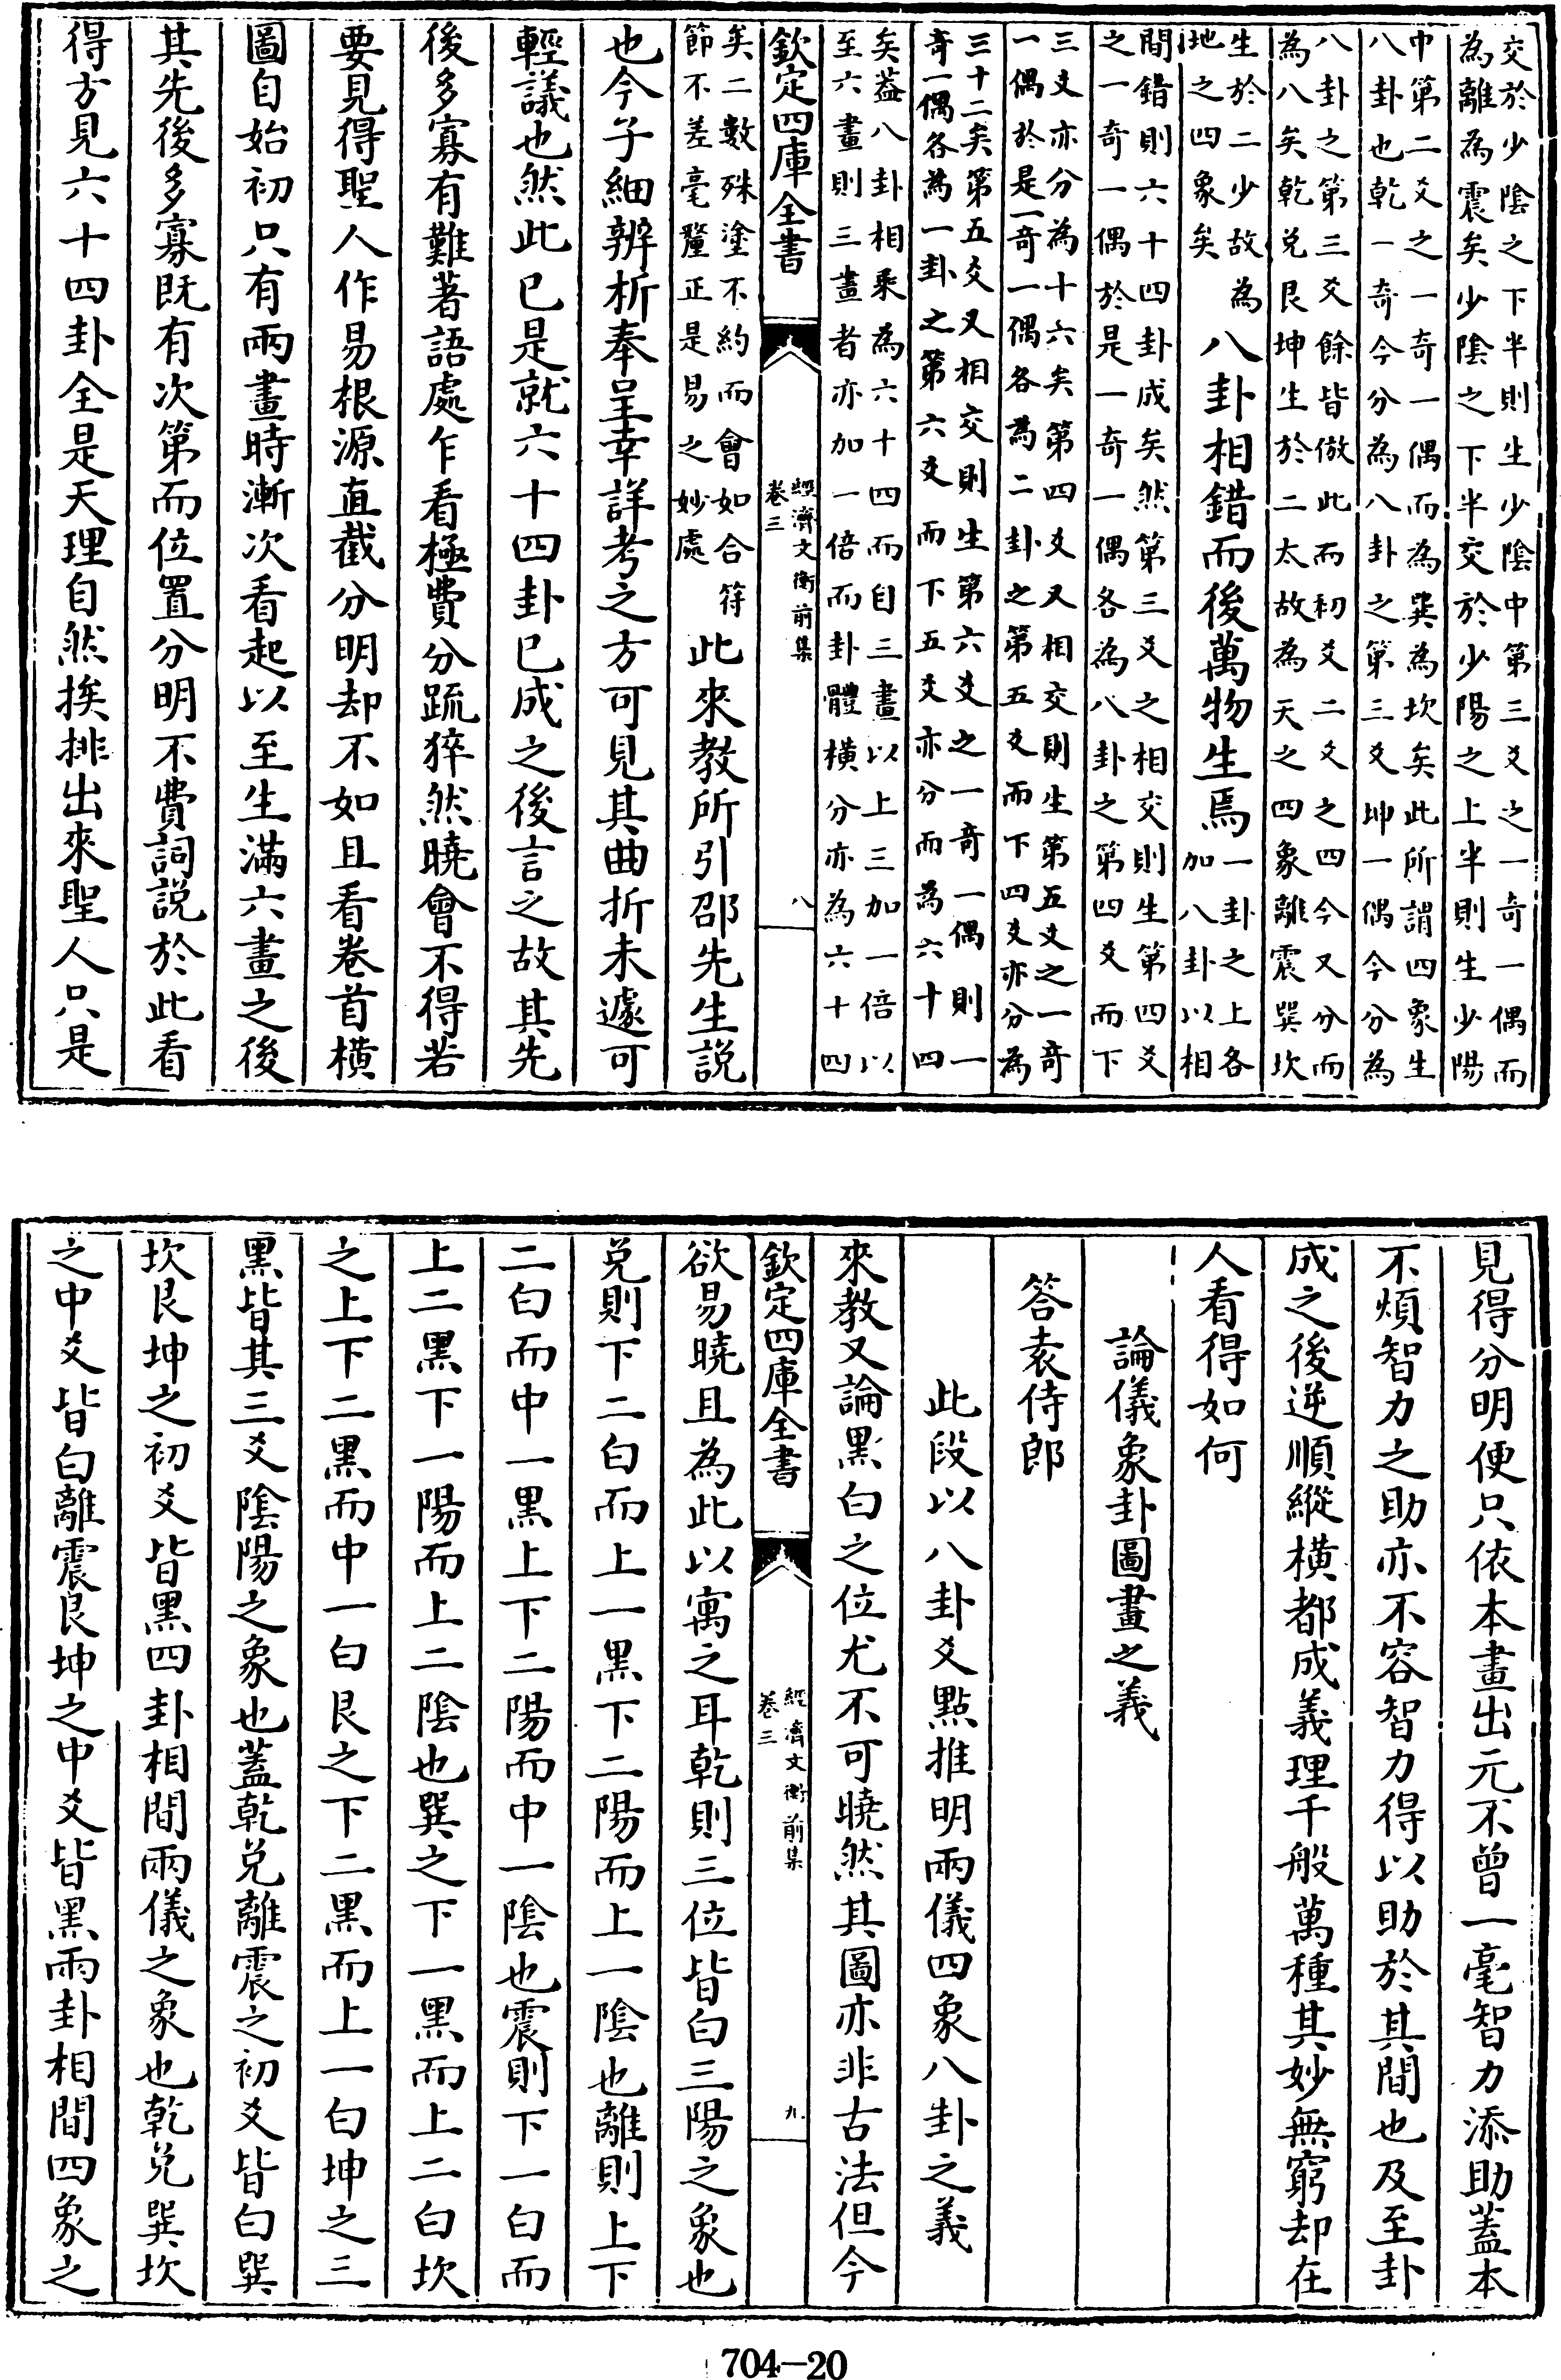 交於少陰之下半則生少陰中第三爻之一奇一偶而
為離為震矣少陰之下半交於少陽之上半則生少陽
中第二爻之一奇一偶而為巽為坎矣此所謂四象生
八卦也乾一奇今分為八卦之第三爻坤一偶今分為
八卦之第三爻餘皆倣此而初爻二爻之四今又分而
為八矣乾兌艮坤生於二太故為天之四象離震巽坎
生於二少故為
地之四象矣
八卦相錯而後萬物生焉
一卦之上各
加八卦以相
間錯則六十四卦成矣然第三爻之相交則生第四爻
之一奇一偶於是一奇一偶各為八卦之第四爻而下
三爻亦分為十六矣第四爻又相交則生第五爻之一奇
一偶於是一奇一偶各為二卦之第五爻而下四爻亦分為
三十二矣第五爻又相交則生第六爻之一奇一偶則一
奇一偶各為一卦之第六爻而下五爻亦分而為六十四
矣蓋八卦相乘為六十四而自三畫以上三加一倍以
至六畫則三畫者亦加一倍而卦體橫分亦為六十四
欽定四庫全書
經濟文衡前集
卷三
八
矣二數殊塗不約而會如合符
節不差毫釐正是易之妙處
此來教所引邵先生說
也今子細辨析奉呈幸詳考之方可見其曲折未遽可
輕議也然此已是就六十四卦已成之後言之故其先
後多寡有難著語處乍看極費分疏猝然曉會不得若
要見得聖人作易根源直截分明却不如且看卷首橫
圖自始初只有兩畫時漸次看起以至生滿六畫之後
其先後多寡既有次第而位置分明不費詞説於此看
得方見六十四卦全是天理自然挨排出來聖人只是
見得分明便只依本畫出元不曾一毫智力添助蓋本
不煩智力之助亦不容智力得以助於其間也及至卦
成之後逆順縱橫都成義理千般萬種其妙無窮却在
人看得如何
論儀象卦圖畫之義
答袁侍郎
此段以八卦爻點推明兩儀四象八卦之義
來教又論黑白之位尤不可曉然其圖亦非古法但今
欽定四庫全書
經濟文衡前集
卷三
九
欲易曉且為此以寓之耳乾則三位皆白三陽之象也
兌則下二白而上一黑下二陽而上一陰也離則上下
二白而中一黑上下二陽而中一陰也震則下一白而
上二黑下一陽而上二陰也巽之下一黑而上二白坎
之上下二黑而中一白艮之下二黑而上一白坤之三
黑皆其三爻陰陽之象也蓋乾兌離震之初爻皆白巽
坎艮坤之初爻皆黑四卦相間兩儀之象也乾兌巽坎
之中爻皆白離震艮坤之中爻皆黑兩卦相間四象之
704—20